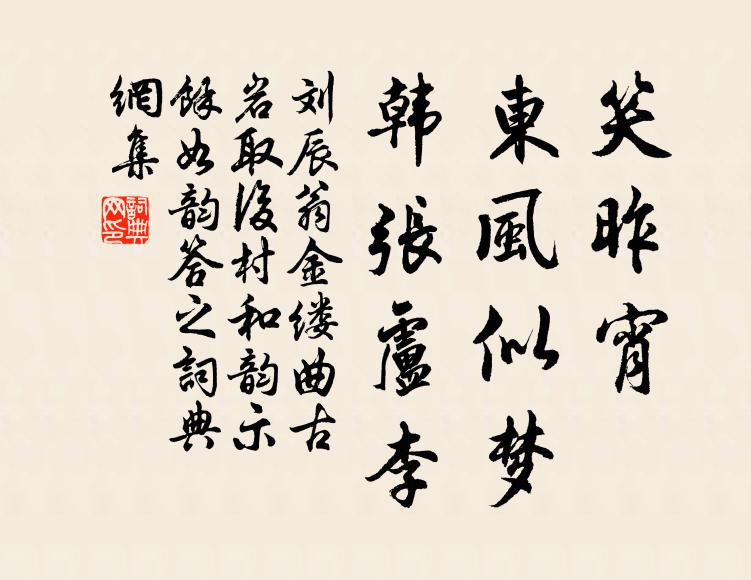 笑昨宵
東風似梦
韩張盧李
刘辰翁金缕曲古
岩取後村和韵示
餘如韵答之詞典
網集
詞典網印